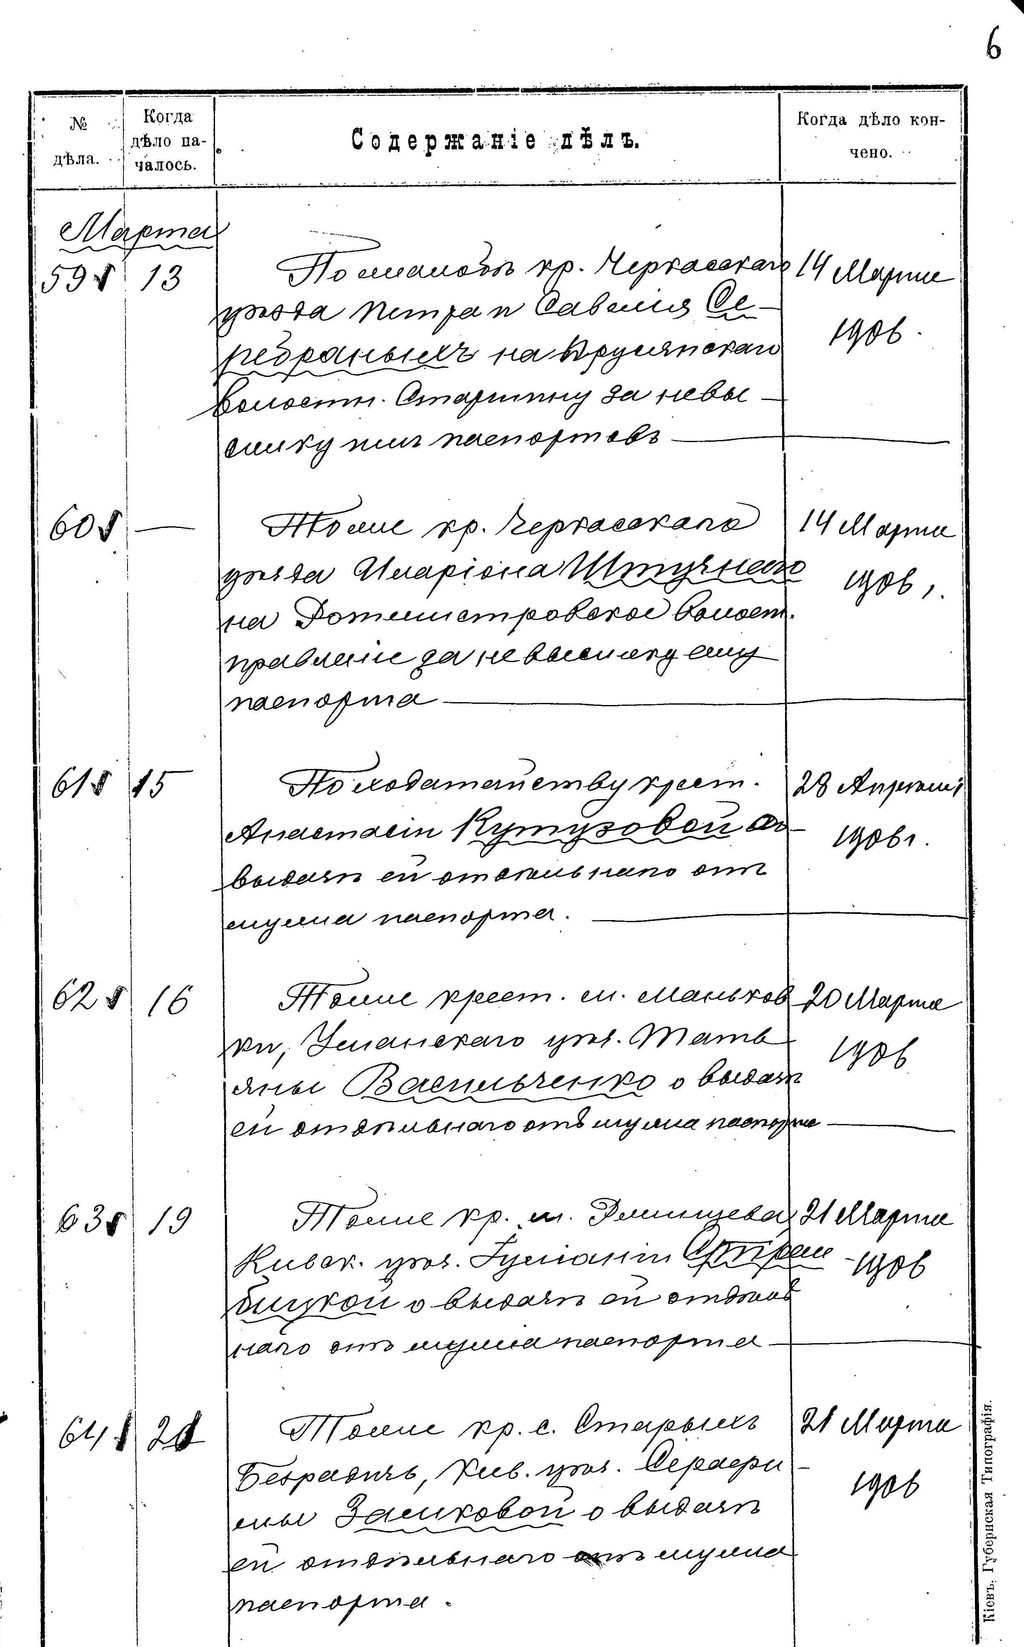 6
№ дѣла.
Когда дѣло началось.
Содержаніе дѣлъ.
Когда дѣло кончено.
Марта
59 13 По жалобѣ кр. Черкасскаго 14 Марта
уѣзда Петра и Савелія Се- 1906.
ребраныхъ на
волостн. Старшину за невы-
сылку имъ паспортовъ
60 — Тоже кр. Черкасскаго 14 Марта
уѣзда Иларіона Штучнаго 1906.
на Ротмистровское волост.
правленіе за невысылку ему
паспорта
61 15 По ходатайству крест. 28 Апрѣля
Анастасіи Кутузовой о 1906г.
выдачѣ ей отдѣльнаго отъ
мужа паспорта.
62 16 Тоже крест. м. Маньков 20 Марта
ки, Уманскаго уѣз. Тать 1906
яны Васильченко о выдачѣ
ей отдѣльнаго отъ мужа паспорта
63 19 Тоже кр. м. 21 Марта
Кіевск. уѣз. Іуліаніи 1906
бицкой о выдачѣ ей отдѣль
наго отъ мужа паспорта
64 Тоже кр. с. Старыхъ 21 Марта
Безрадичъ, Кіев. уѣз. Серафи 1906
мы Заиковой о выдачѣ
ей отдѣльнаго отъ мужа
паспорта.
Кіевъ. Губернская Типографія.